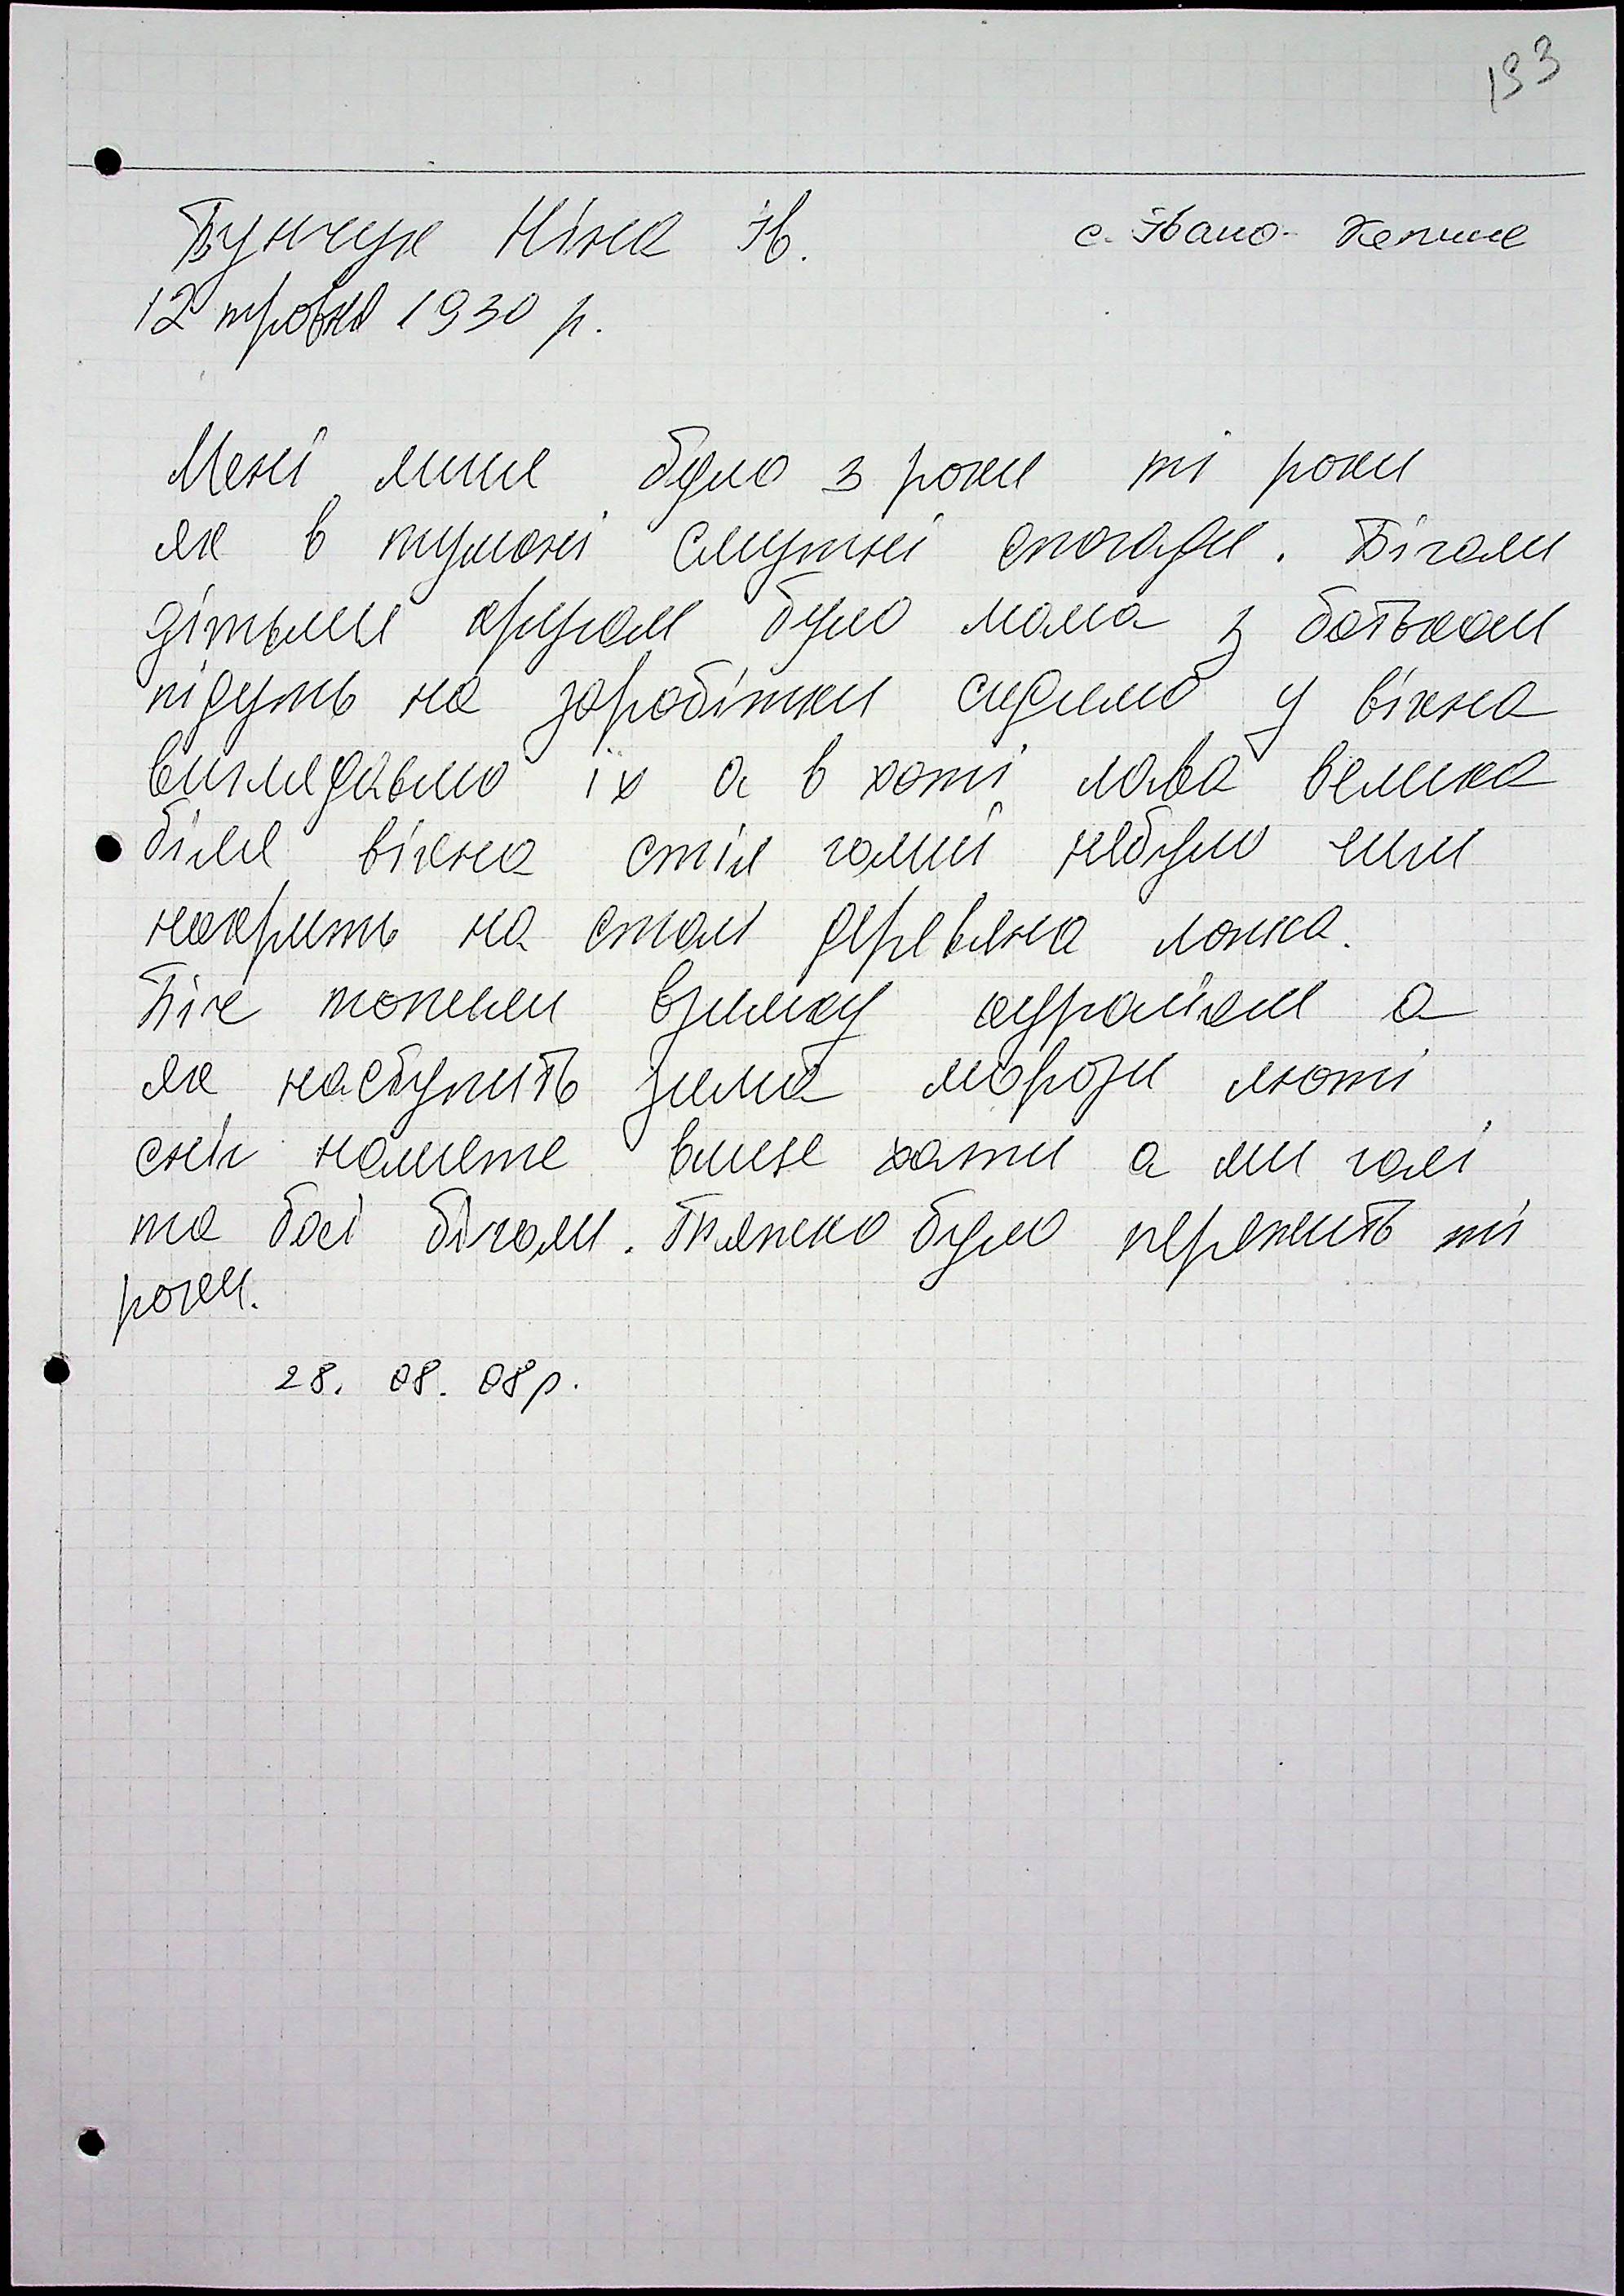 193
Бунчук Ніна Ів. с. Івано-Кепине
12 травня 1930 р.
Мені лише було 3 роки ті роки
як в тумані смутні спогади. Бігали
дітьми кругом було мама з батьком
підуть на заробітки сидимо у вікна
виглядаємо їх а в хаті лава велика
біля вікна стіл голий небуло чим
накрить на столі деревяна ложка.
Піч топили взимку кураїком а
як наступить зима морози люті
сніг намете вище хати а ми голі
та босі бігали. Тяжко було пережить ті
роки.
28. 08. 08р.